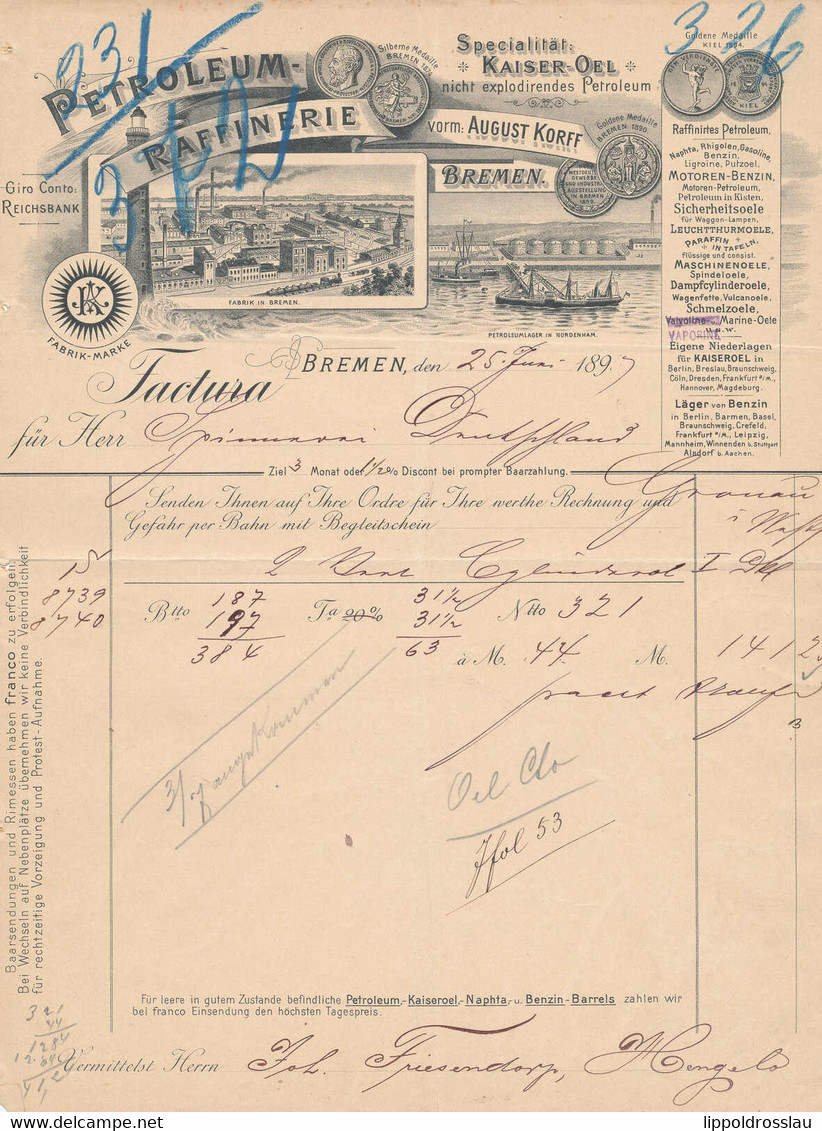 231
326
372
PETROLEUM-
RAFFINERIE
vorm: AUGUST KORFF
BREMEN.
Silberne Medaille
Specialität:
KAISER-OEL
nicht explodirendes Petroleum
Goldene Medaille
KIEL 1894.
Goldene Medaille
BREMEN 1890.
Giro Conto:
REICHSBANK
FABRIK-MARKE
FABRIK IN BREMEN.
PETROLEUMLAGER IN NORDENHAM.
Raffinirtes Petroleum,
Naphta, Rhigolen, Gasoline,
Benzin,
Ligroine, Putzoel.
MOTOREN-BENZIN,
Motoren-Petroleum,
Petroleum in Kisten.
Sicherheitsoele
für Waggon-Lampen,
LEUCHTTHURMOELE,
PARAFFIN
IN TAFELN,
flüssige und consist.
MASCHINENOELE,
Spindeloele,
Dampfcylinderoele,
Wagenfette, Vulcanoele,
Schmelzoele,
Valvoline- Marine-Oele
u.s.w.
VAPORINE
Eigene Niederlagen
für KAISEROEL in
Berlin, Breslau, Braunschweig,
Cöln, Dresden, Frankfurt a/M.,
Hannover, Magdeburg.
Läger von Benzin
in Berlin, Barmen, Basel,
Braunschweig, Crefeld,
Frankfurt a/M., Leipzig,
Mannheim, Winnenden b. Stuttgart
Alsdorf b. Aachen.
BREMEN, den 25. Juni 1897
Factura
für Herr Spinnerei Deutschland
Ziel 3 Monat oder 1 1/2 % Discont bei prompter Baarzahlung.
Gronau
i Westf
Senden Ihnen auf Ihre Ordre für Ihre werthe Rechnung und
Gefahr per Bahn mit Begleitschein
2 Cylinderoel I
8739
8740
Btto 187
197
384
Ta 20%
31 1/2
31 1/2
63
Ntto 321
à M. 44. M. 141 2
3/7 angekommen
Oel Cto
fol 53
Baarsendungen und Rimessen haben franco zu erfolgen.
Bei Wechseln auf Nebenplätze übernehmen wir keine Verbindlichkeit
für rechtzeitige Vorzeigung und Protest-Aufnahme.
Für leere in gutem Zustande befindliche Petroleum,-Kaiseroel,-Naphta,-u. Benzin-Barrels zahlen wir
bei franco Einsendung den höchsten Tagespreis.
321
44
1284
1284
Vermittelst Herrn Joh. Friesendorp, Hengelo
lippoldrosslau